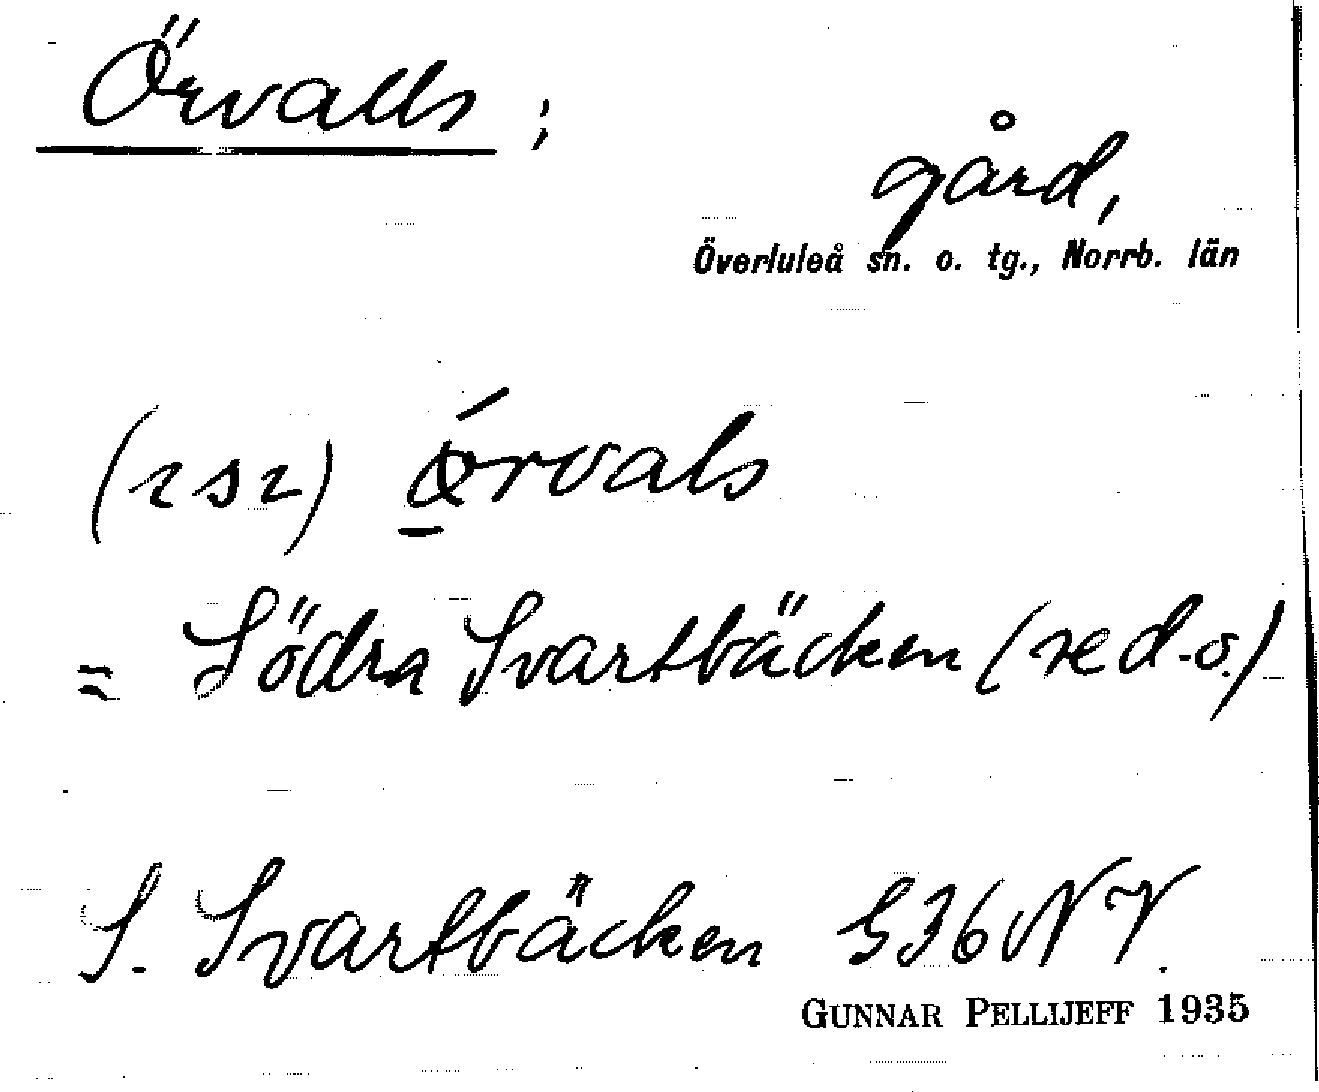 Örvalls;
gård,
Överluleå sn. o. tg., Norrb. län
= Södra Svartbäcken (red.o.)
S. Svartbäcken 536 NV.
GUNNAR PELLIJEFF 1935